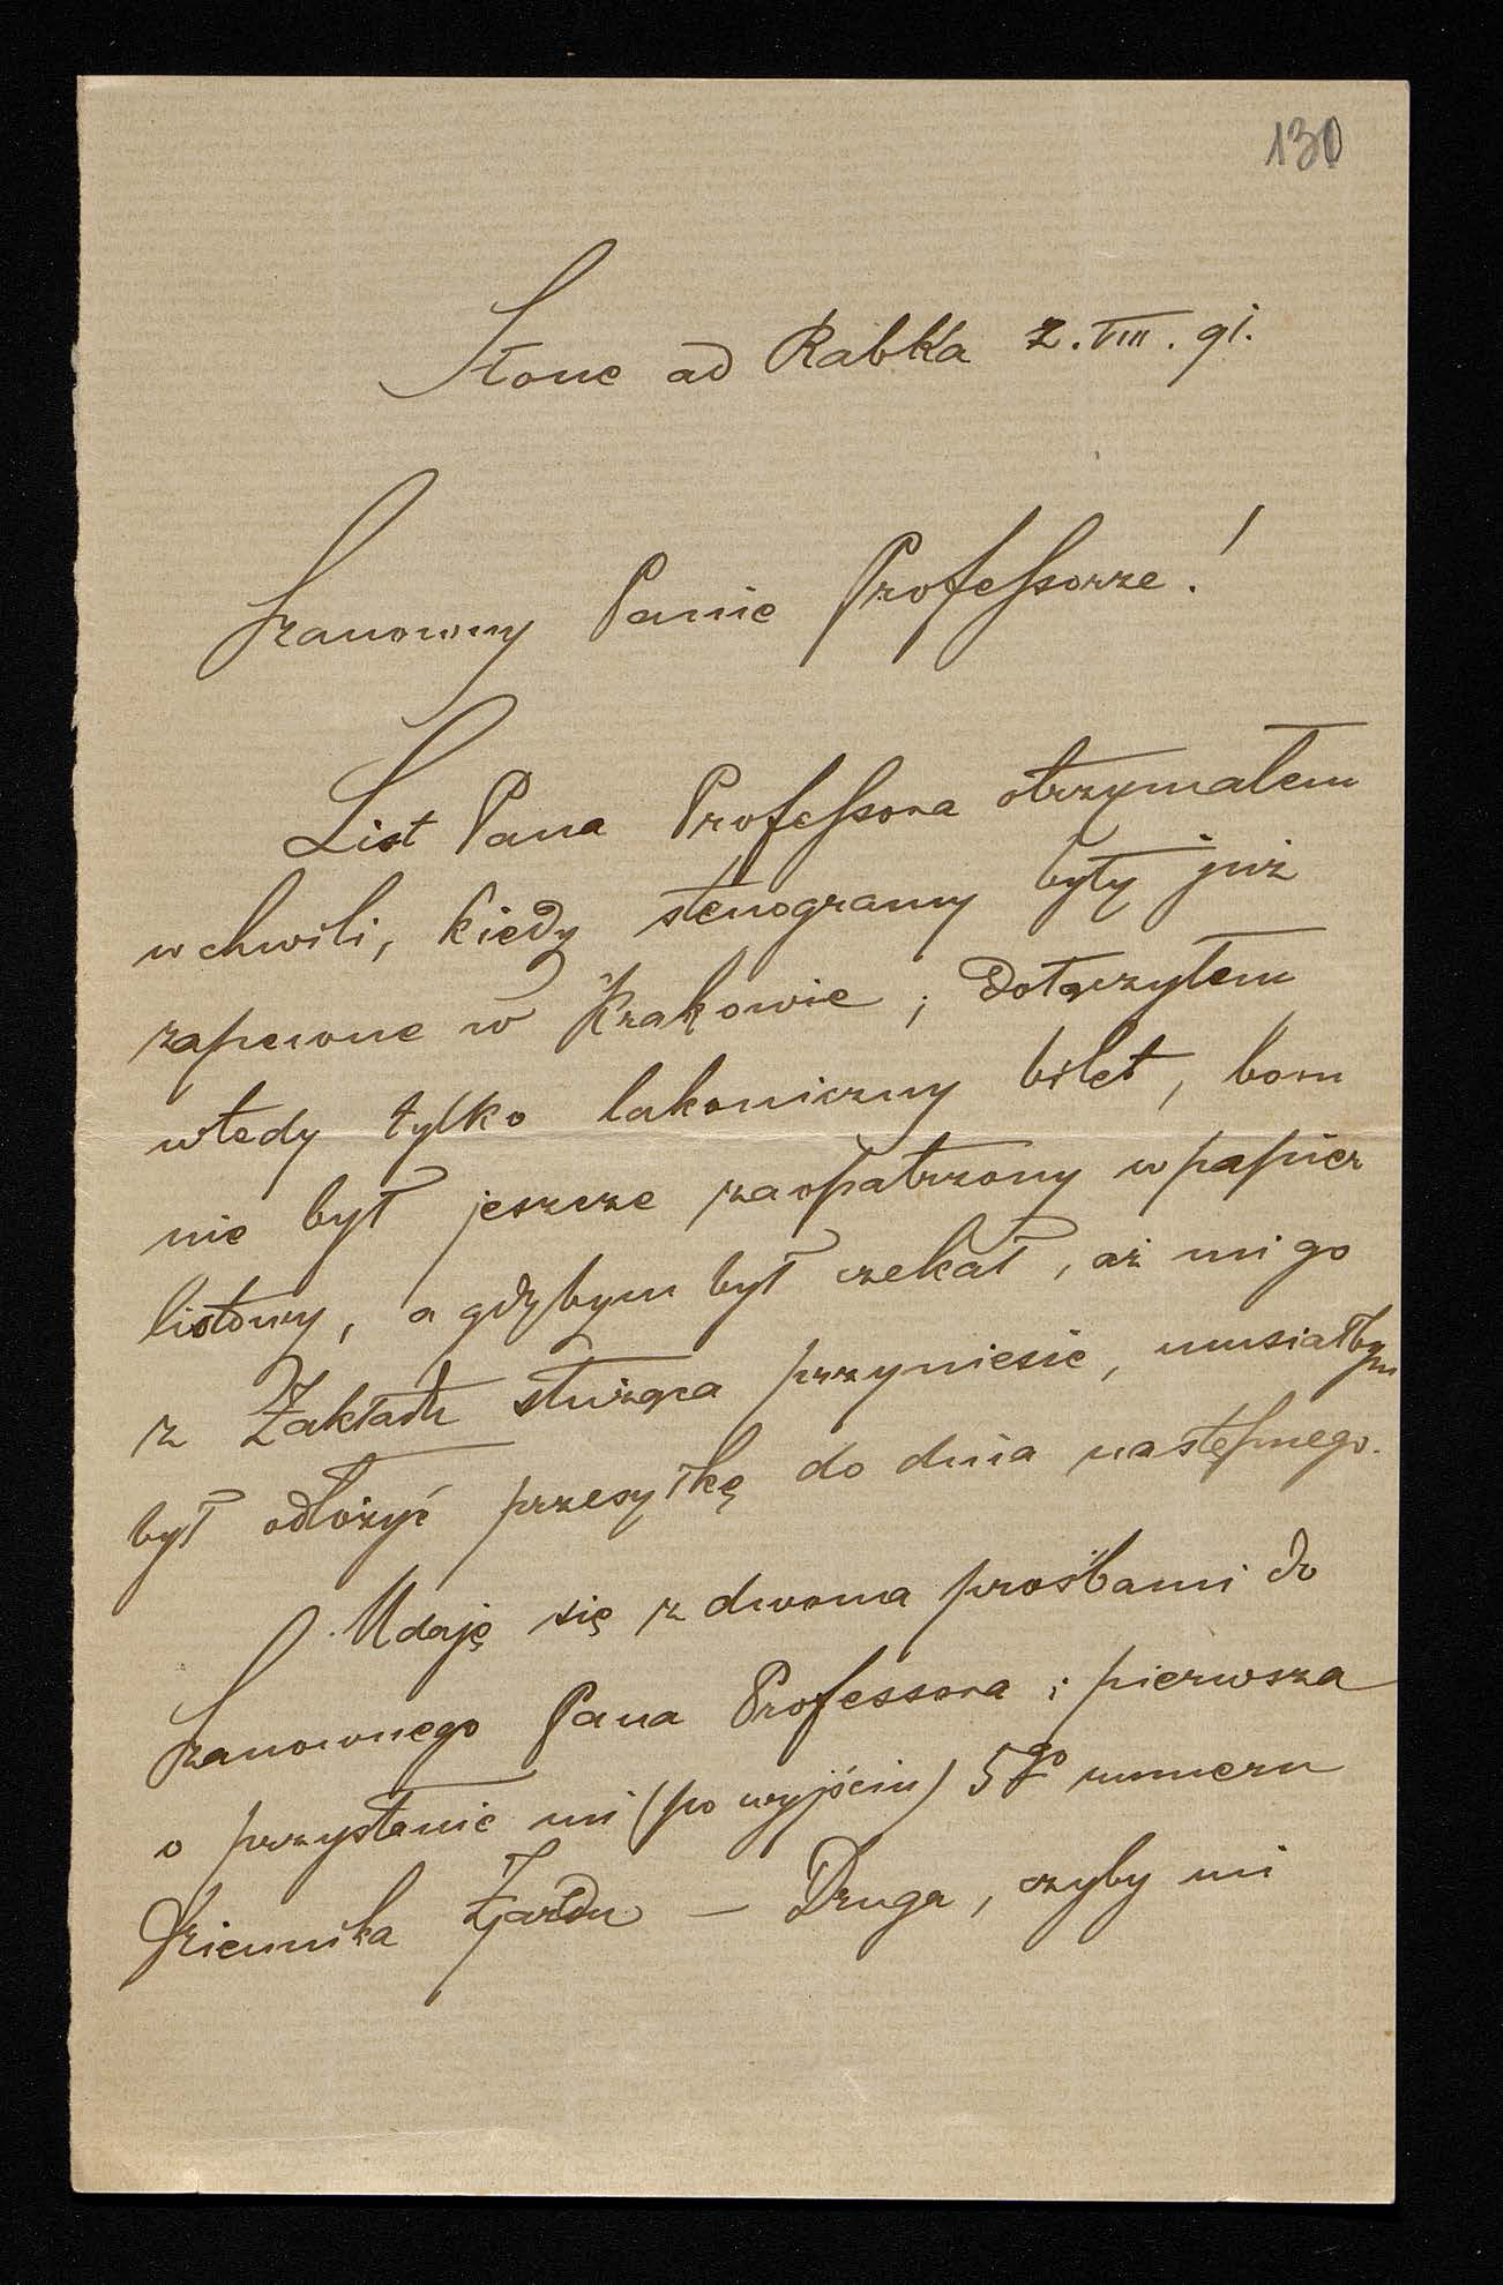 130
Słone ad Rabka 2. VIII. 91.
Szanowny Panie Professorze!
List Pana Professora otrzymałem
w chwili, kiedy stenogramy były już
zapewne w Krakowie; dołączyłem
wtedy tylko lakoniczny bilet, bom
nie był jeszcze zaopatrzony w papier
listowy, a gdybym był czekał, aż mi go
z Zakładu służąca przyniesie, musiałbym
był odłożyć przesyłkę do dnia następnego.
Udaję się z dwoma prośbami do
Szanownego Pana Professora; pierwsza
o przysłanie mi (po wyjściu) 5go numeru
Dziennika Zjazdu — Druga, czyby mi